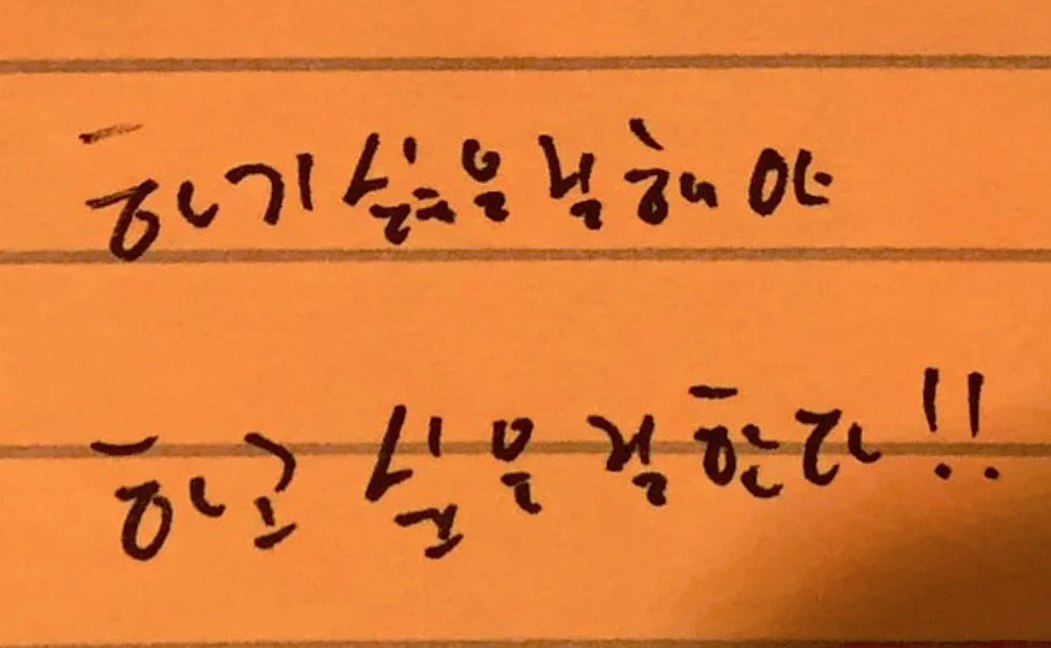 하기 싫은 걸 해야
하고 싶은 걸 한다!!